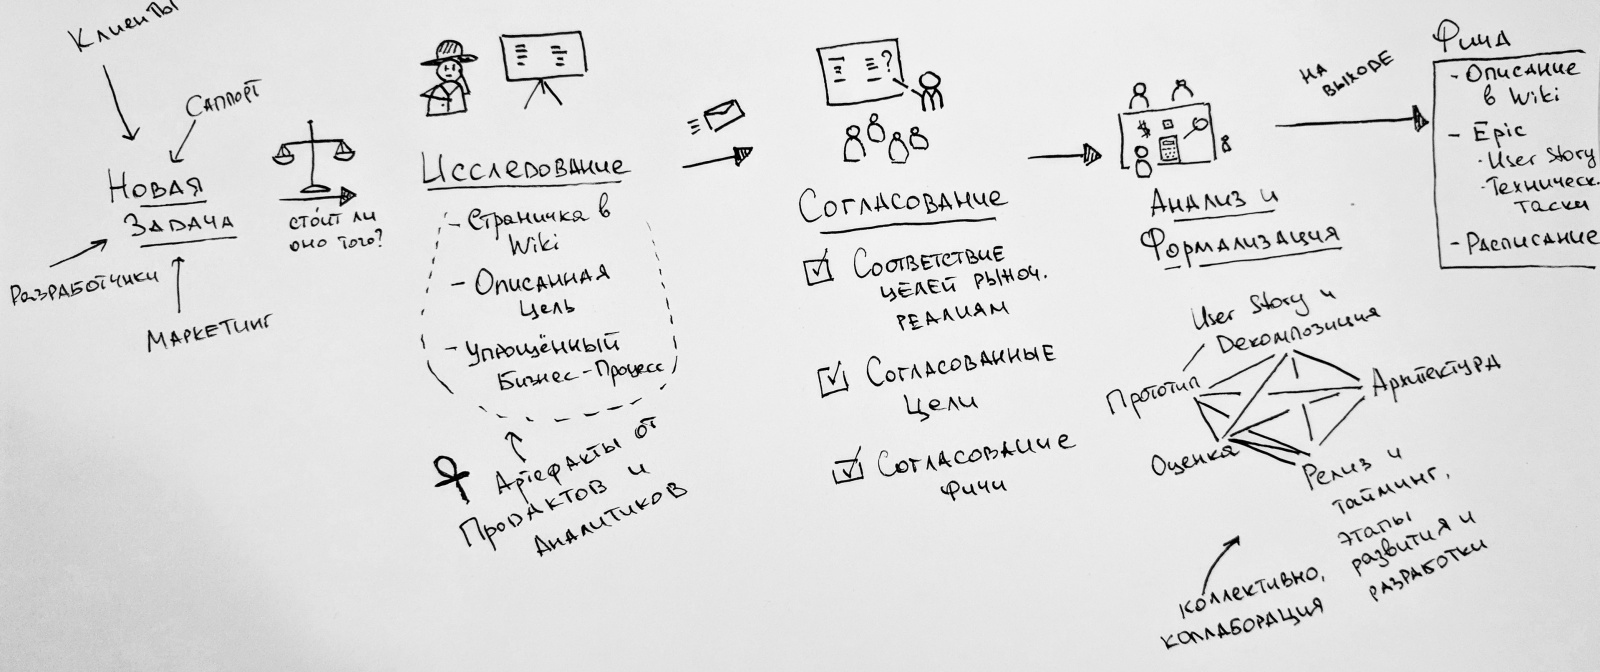 Клиенты
Саппорт
Новая
Задача
Разработчики
Маркетинг
стóит ли
оно того?
Исследование
- Страничка в
Wiki
- Описанная
цель
- Упрощённый
Бизнес-Процесс
Артефакты от
Продактов и
Аналитиков
?
Согласование
Соответствие
целей рыноч.
реалиям
Согласованные
Цели
Согласование
фичи
$
Анализ и
Формализация
User Story и
Декомпозиция
Прототип
Архитектура
Оценка
Релиз и
тайминг,
этапы
развития и
разработки
Коллективно,
коллаборация
на
выходе
Фича
- Описание
в Wiki
- Epic
· User Story
· Техническ.
таски
- Расписание